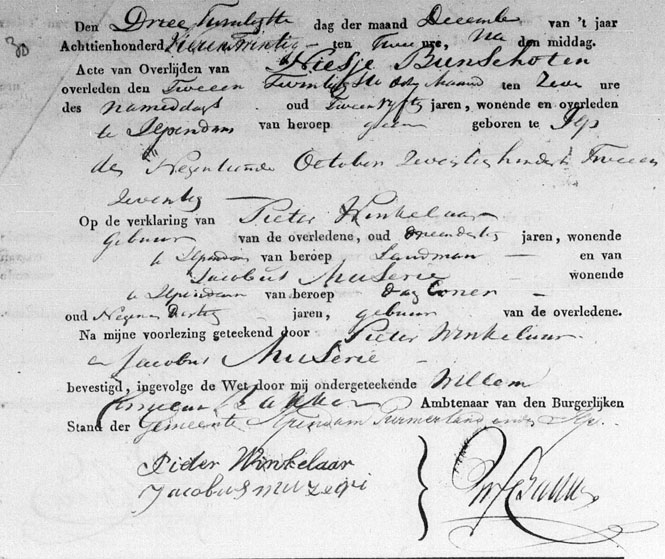 Den Driee Twintigste dag der maand December van 't jaar
30
Achttienhonderd Vierentwintig ten Twee ure, Na den middag.
Acte van Overlijden van Hiesje Bunschoten
overleden den Tweeen Twintigste dezer Maand ten Zeve ure
des nameddags oud Tweenvyftig jaren, wonende en overleden
te Ilpendam van beroep geen geboren te Ilp
den Negentiende October Zeventienhonderd Tweeen
Zeventig
Op de verklaring van Pieter Winkelaar
Gebuur van de overledene, oud Drieendertig jaren, wonende
te Ilpendam van beroep Landman en van
Jacobus Muserie wonende
te Ilpendam van beroep dag Loner
oud Negenen Dertig jaren, gebuur van de overledene.
Na mijne voorlezing geteekend door Pieter Winkelaar
en Jacobus Muserie
bevestigd, ingevolge de Wet door mij ondergeteekende Willem
Bakker Ambtenaar van den Burgerlijken
Stand der Gemeente Ilpendam Purmerland en Ilp.
Pieter Winkelaar
Jacobus muzeri